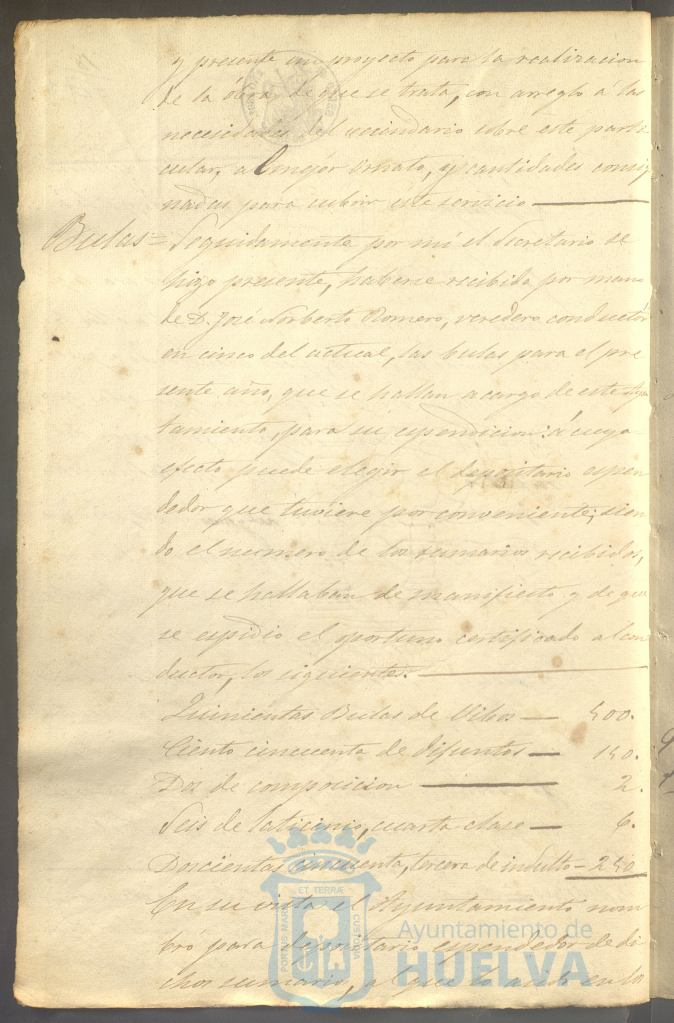 y presente un proyecto para la realizacion
de la obra de que se trata, con arreglo á las
necesidades del vecindario sobre este parti
cular, al mejor ornato, y cantidades consig
nadas para cubrir este servicio.
Bulas = Seguidamente por mí el Secretario se
hizo presente, haberse recibido por mano
de D. José Norberto Romero, veredero conductór
en cinco del actual, las bulas para el pre
sente año, que se hallan a cargo de este Ayun
tamiento, para su espendicion: á cuyo
efecto puede elegir el depositario espen
dedor que tuviere por conveniente; sien
do el numero de los sumarios recibidos,
que se hallaban de manifiesto y de que
se espidio el oportuno certificado al con
ductor, los siguientes.
Quinientas Bulas de Vibos — 500.
Ciento cincuenta de difuntos — 150.
Dos de composicion — 2.
Seis de laticinio, cuarta clase — 6.
Doscientas cincuenta, tercera de indulto — 250
En su vista el Ayuntamiento nom
bró para depositario espendedor de di
chos sumarios, al que lo
PORTUS MARIS ET TERRÆ CUSTODIA
Ayuntamiento de
HUELVA